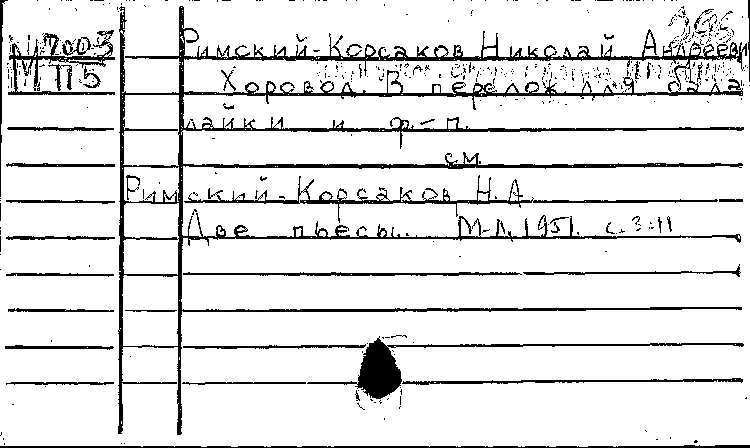 М 7003 / П5
Римский-Корсаков Николай Андрееви
Хоровод. В перелож. для бала
лайки и ф-п.
см.
Римский-Корсаков Н.А
Две пьесы. М-Л, 1951. с. 3-11